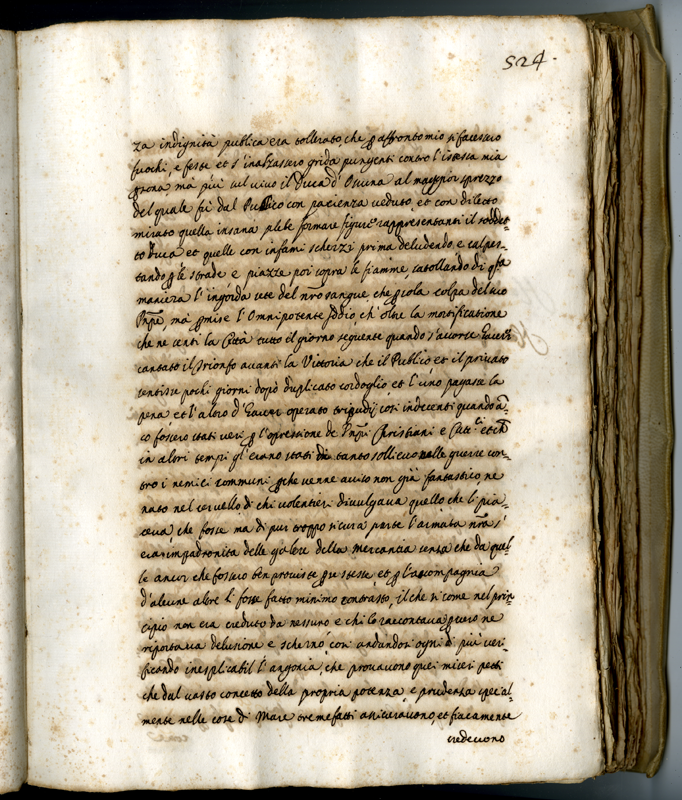 524.
za indignità publica era tollerato, che p affronto mio si facessero
fuochi, e feste et s'inalzassero grida pungenti contro l'istessa mia
psona ma più nel vivo il Duca d'Ossuna al maggior sprezzo
del quale fù dal Publico con pacienza veduto, et con diletto
mirato quella insana plebe formare figure rappresentanti il soddet-
to Duca et quelle con infami scherzi prima deludendo, e calpes-
tando p le strade e piazze poi sopra le fiamme satollando di qsta
maniera l'ingorda sete del nro sangue, che p sola colpa del suo
Pnpe, mà pmise l'Omnipotente Iddio, ch'oltre la mortificatione
che ne sentì la Città tutto il giorno seguente quando s'accorse haver
cantato il trionfo avanti la Vittoria che il Publico et il privato
sentisse pochi giorni dopò duplicato cordoglio et l'uno pagasse la
pena et l'altro d'haver operato tripudij così indecenti quando an-
co fossero stati veri p l'opressione de Pnpi Christiani e Catt.ci et ch
in altri tempi gl'erano stati di tanto sollievo nelle guerre con-
tro i nemici communi, pche venne aviso non già fantastico ne
nato nel cervello di chi volentieri divulgava quello che li pia-
ceva, che fosse ma di pur troppo sicura parte l'armata nra s'
era impadronita delle galere della Mercantia senza che da quel-
le ancor che fossero ben proviste p se stesse, et p l'accompagnia
d'alcune altre li fosse fatto minimo contrasto, il che si come nel prin-
cipio non era creduto da nessuno e chi lo raccontava pcerto ne
riportava delusione e scherno, così andandosi ogni dì più veri-
ficando inesplicabil l'angonia, che provavono quei miseri petti
che dal vasto concetto della propria potenza, e prudenza special-
mente nelle cose di Mare tremefatti assicuravono, et fiacamente
credevono